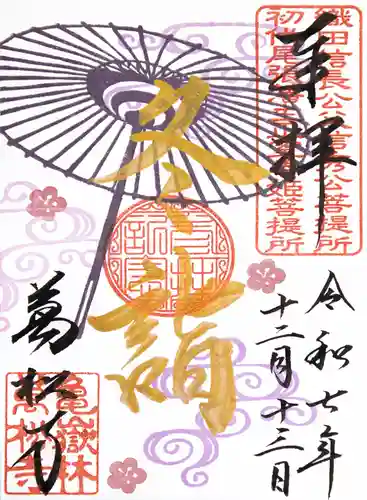 奉拝
織田信長公父信秀公菩提所
初代尾張藩主正室春姫菩提所
令和七年
十二月十三日
冬詣
萬松寺
亀嶽林
萬松寺